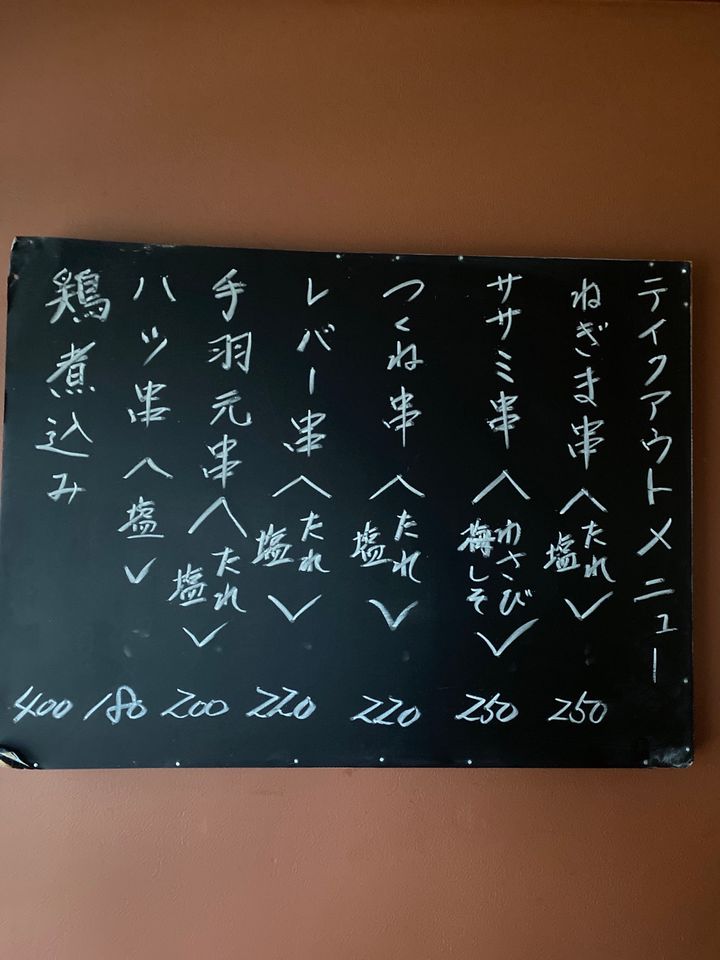 テイクアウトメニュー
ねぎま串〈たれ 塩〉 250
ササミ串〈わさび 梅しそ〉 250
つくね串〈たれ 塩〉 220
レバー串〈たれ 塩〉 220
手羽元串〈たれ 塩〉 200
ハツ串〈塩〉 180
鶏煮込み 400